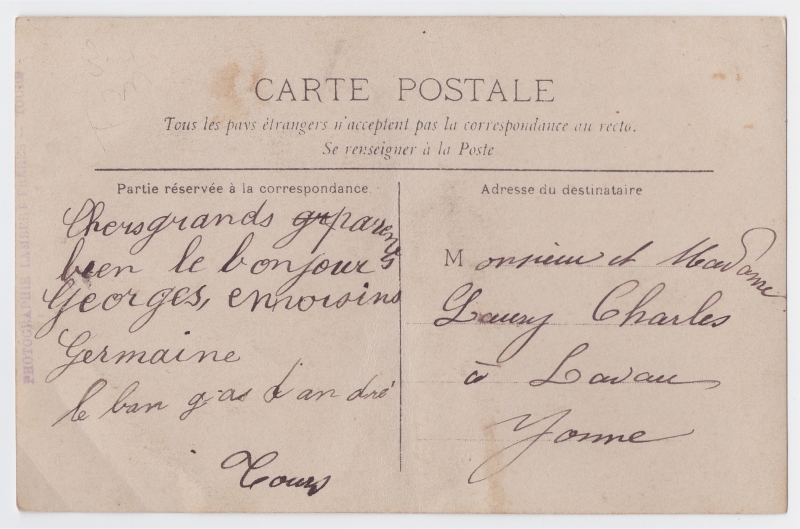 CARTE POSTALE
Tous les pays étrangers n'acceptent pas la correspondance au recto.
Se renseigner à la Poste
Partie réservée à la correspondance
Chers grands parents
bien le bonjour
Georges, ennoisins
Germaine
le ban gas d'an dré
Tours
Adresse du destinataire
Monsieur et Madame
Laury Charles
à Lavau
Yonne
PHOTOGRAPHIE